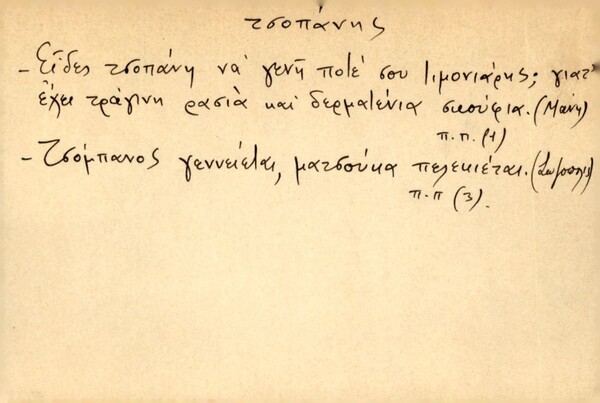 τσοπάνης
- Εἶδες τσοπάνη νά γενῆ ποτέ σου λιμονιάρης; γιατ'
ἔχει τράγινη ρασιά καί δερματένια σκούφια. (Μάνη)
π.π. (1)
- Τζόμπανος γεννειέται, ματσούκα πελεκιέται.
π.π (3).